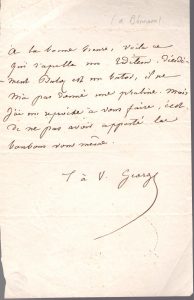 A la bonne heure, voilà ce
qui s'appelle un Editeur, décidé-
ment Buloz est un butor, il ne
m'a pas donné une praline. Mais
j'ai un reproche à vous faire, c'est
de ne pas avoir apporté les
bonbons vous même.
T à V. George